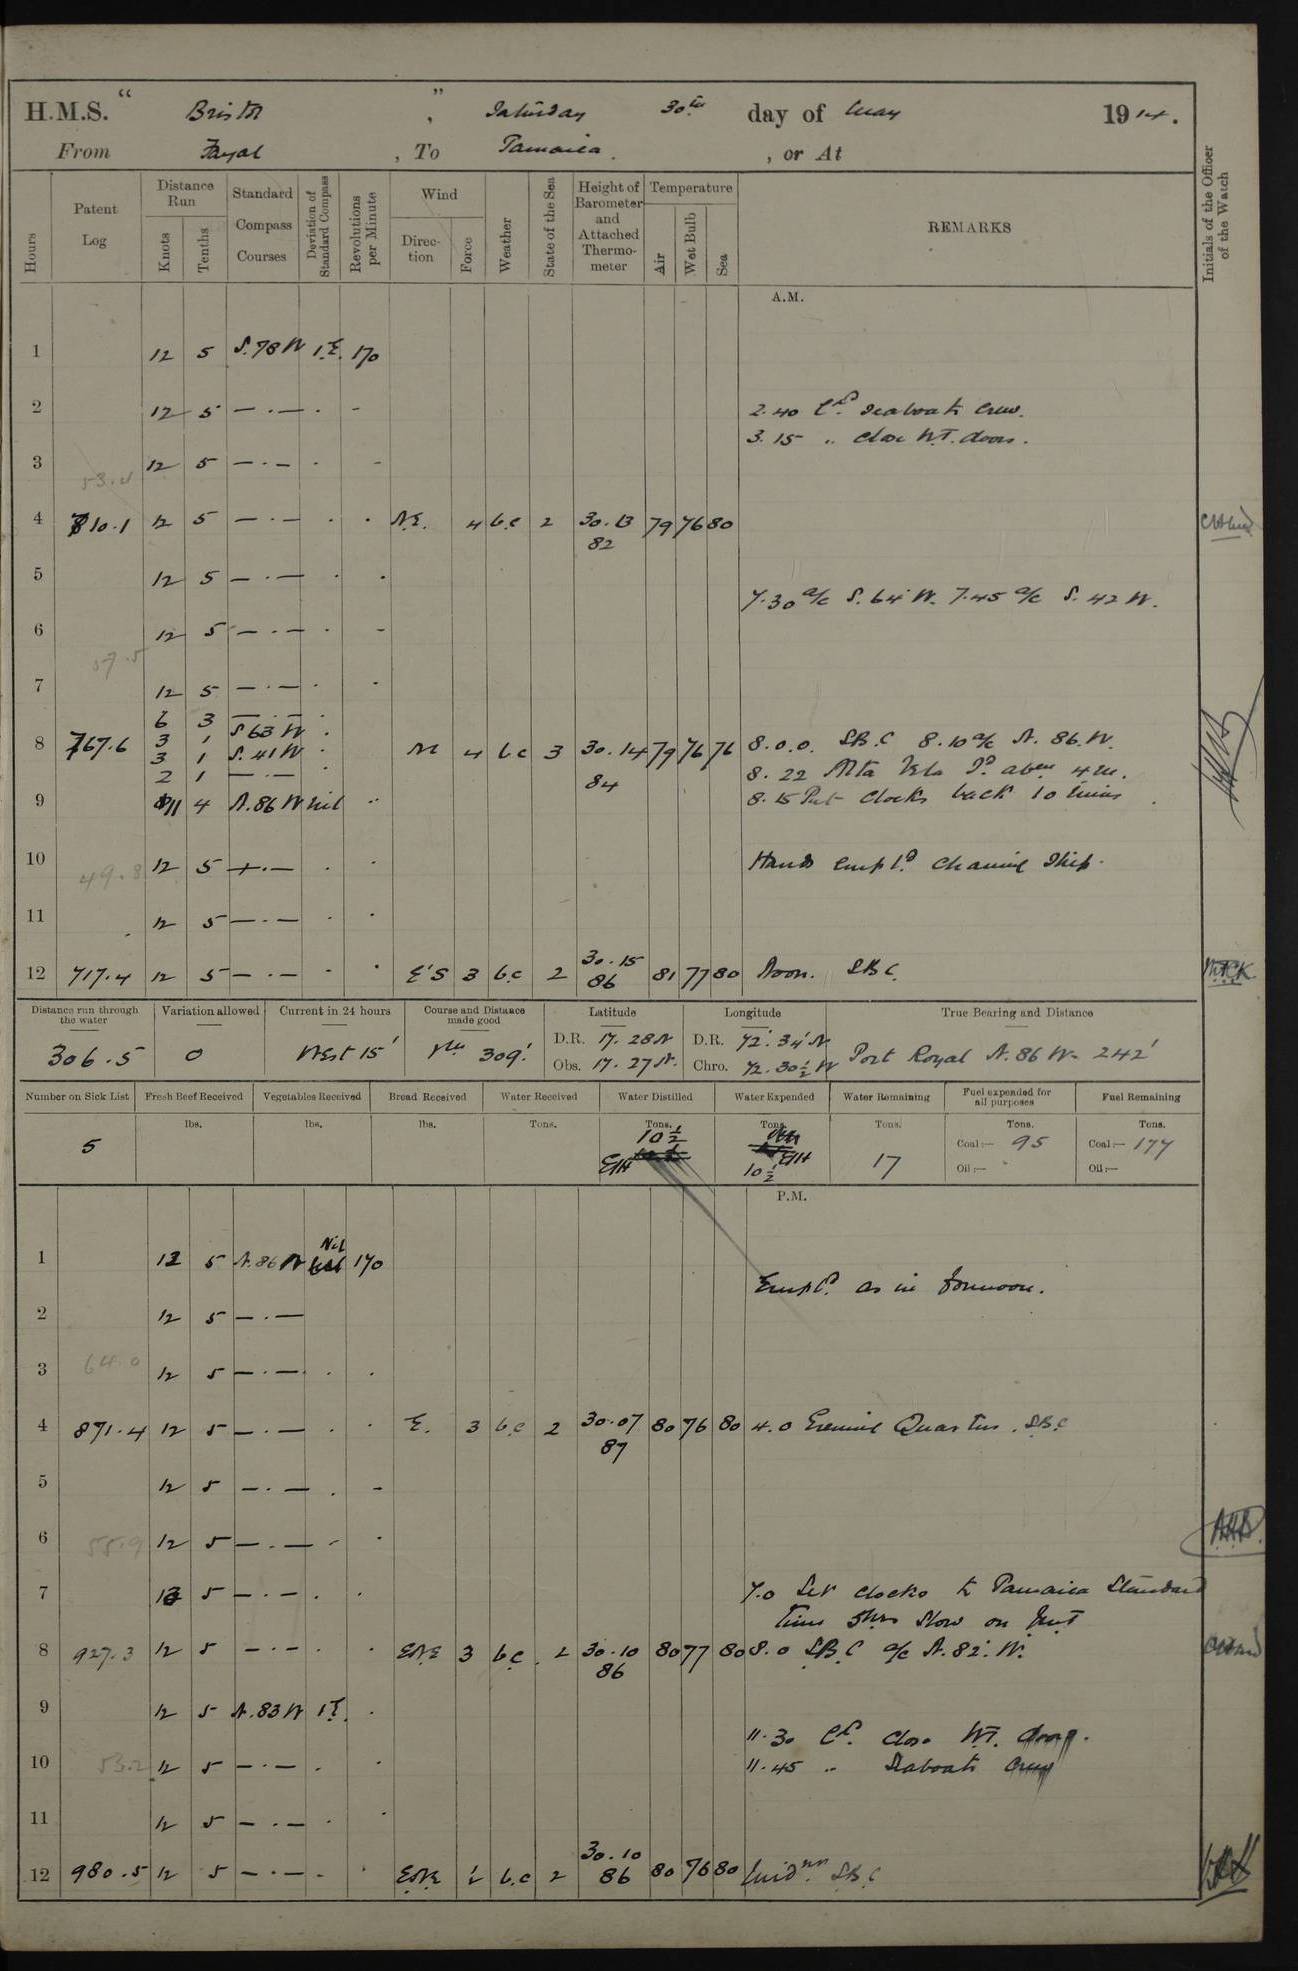 H.M.S. " Bristol ", Saturday 30th day of May 1914.
From Fayal, To Jamaica, or At
Hours
Patent Log
Distance Run
Knots
Tenths
Standard Compass Courses
Deviation of Standard Compass
Revolutions per Minute
Wind
Direction
Force
Weather
State of the Sea
Height of Barometer and Attached Thermometer
Temperature
Air
Wet Bulb
Sea
REMARKS
Initials of the Officer of the Watch
A.M.
1 12 5 S.78 W 1.E. 170
2 12 5 — · — · -
2.40 Exd. seaboats crew.
3.15 " close W.T. doors.
3 12 5 — · — · -
53.4
4 810.1 12 5 — · — · · N.E. 4 b.c 2 30.13 79 76 80
82
5 12 5 — · — · ·
7.30 a/c S.64 W. 7.45 a/c S. 42 W.
6 12 5 — · — · -
57.5
7 12 5 — · — · ·
6 3 — · — ·
3 1 S 63 W ·
8 767.6 3 1 S. 41 W · NE 4 b.c 3 30.14 79 76 76 8.0.0. S.B.C 8.10 a/c N. 86. W.
2 1 — · — · 84 8.22 Alta Vela Pd abeam 4 m.
9 11 4 N.86 W nil " 8.15 Put clocks back 10 mins
10 12 5 — · — · · Hands empld. cleaning Ship.
49.8
11 12 5 — · — · ·
12 717.4 12 5 — · — · · E'S 3 b.c 2 30.15 81 77 80 Noon. S.B.C.
86
Distance run through the water
306.5
Variation allowed
0
Current in 24 hours
West 15'
Course and Distance made good
309'.
Latitude
D.R. 17. 28 N
Obs. 17. 27 N.
Longitude
D.R. 72. 34' W
Chro. 72. 30½ W
True Bearing and Distance
Port Royal N.86 W. 242'
Number on Sick List
5
Fresh Beef Received
lbs.
Vegetables Received
lbs.
Bread Received
lbs.
Water Received
Tons.
Water Distilled
Tons.
10½
Water Expended
Tons.
10½
Water Remaining
Tons.
17
Fuel expended for all purposes
Tons.
Coal:— 95
Oil:—
Fuel Remaining
Tons.
Coal:— 177
Oil:—
P.M.
1 12 5 N.86 W Nil 170
Empld. as in forenoon.
2 12 5 — · —
3 12 5 — · — · ·
64.0
4 871.4 12 5 — · — · · E. 3 b.c 2 30.07 80 76 80 4.0 Evening Quarters. S.B.C
87
5 12 5 — · — · -
6 12 5 — · — - ·
55.9
A.H.B.
7 12 5 — · — · · 7.0 Set clocks to Jamaica Standard
time 5hrs slow on GMT
8 927.3 12 5 — · — · · ENE 3 b.c 2 30.10 80 77 80 8.0 S.B.C a/c N.82. W.
86
9 12 5 N.83 W 1 E. ·
11.30 Exd. close W.T. doors.
10 12 5 — · — · ·
53.2
11.45 " Seaboats crew
11 12 5 — · — · ·
12 980.5 12 5 — · — · · ENE ½ b.c 2 30.10 80 76 80 Midnt. S.B.C
86